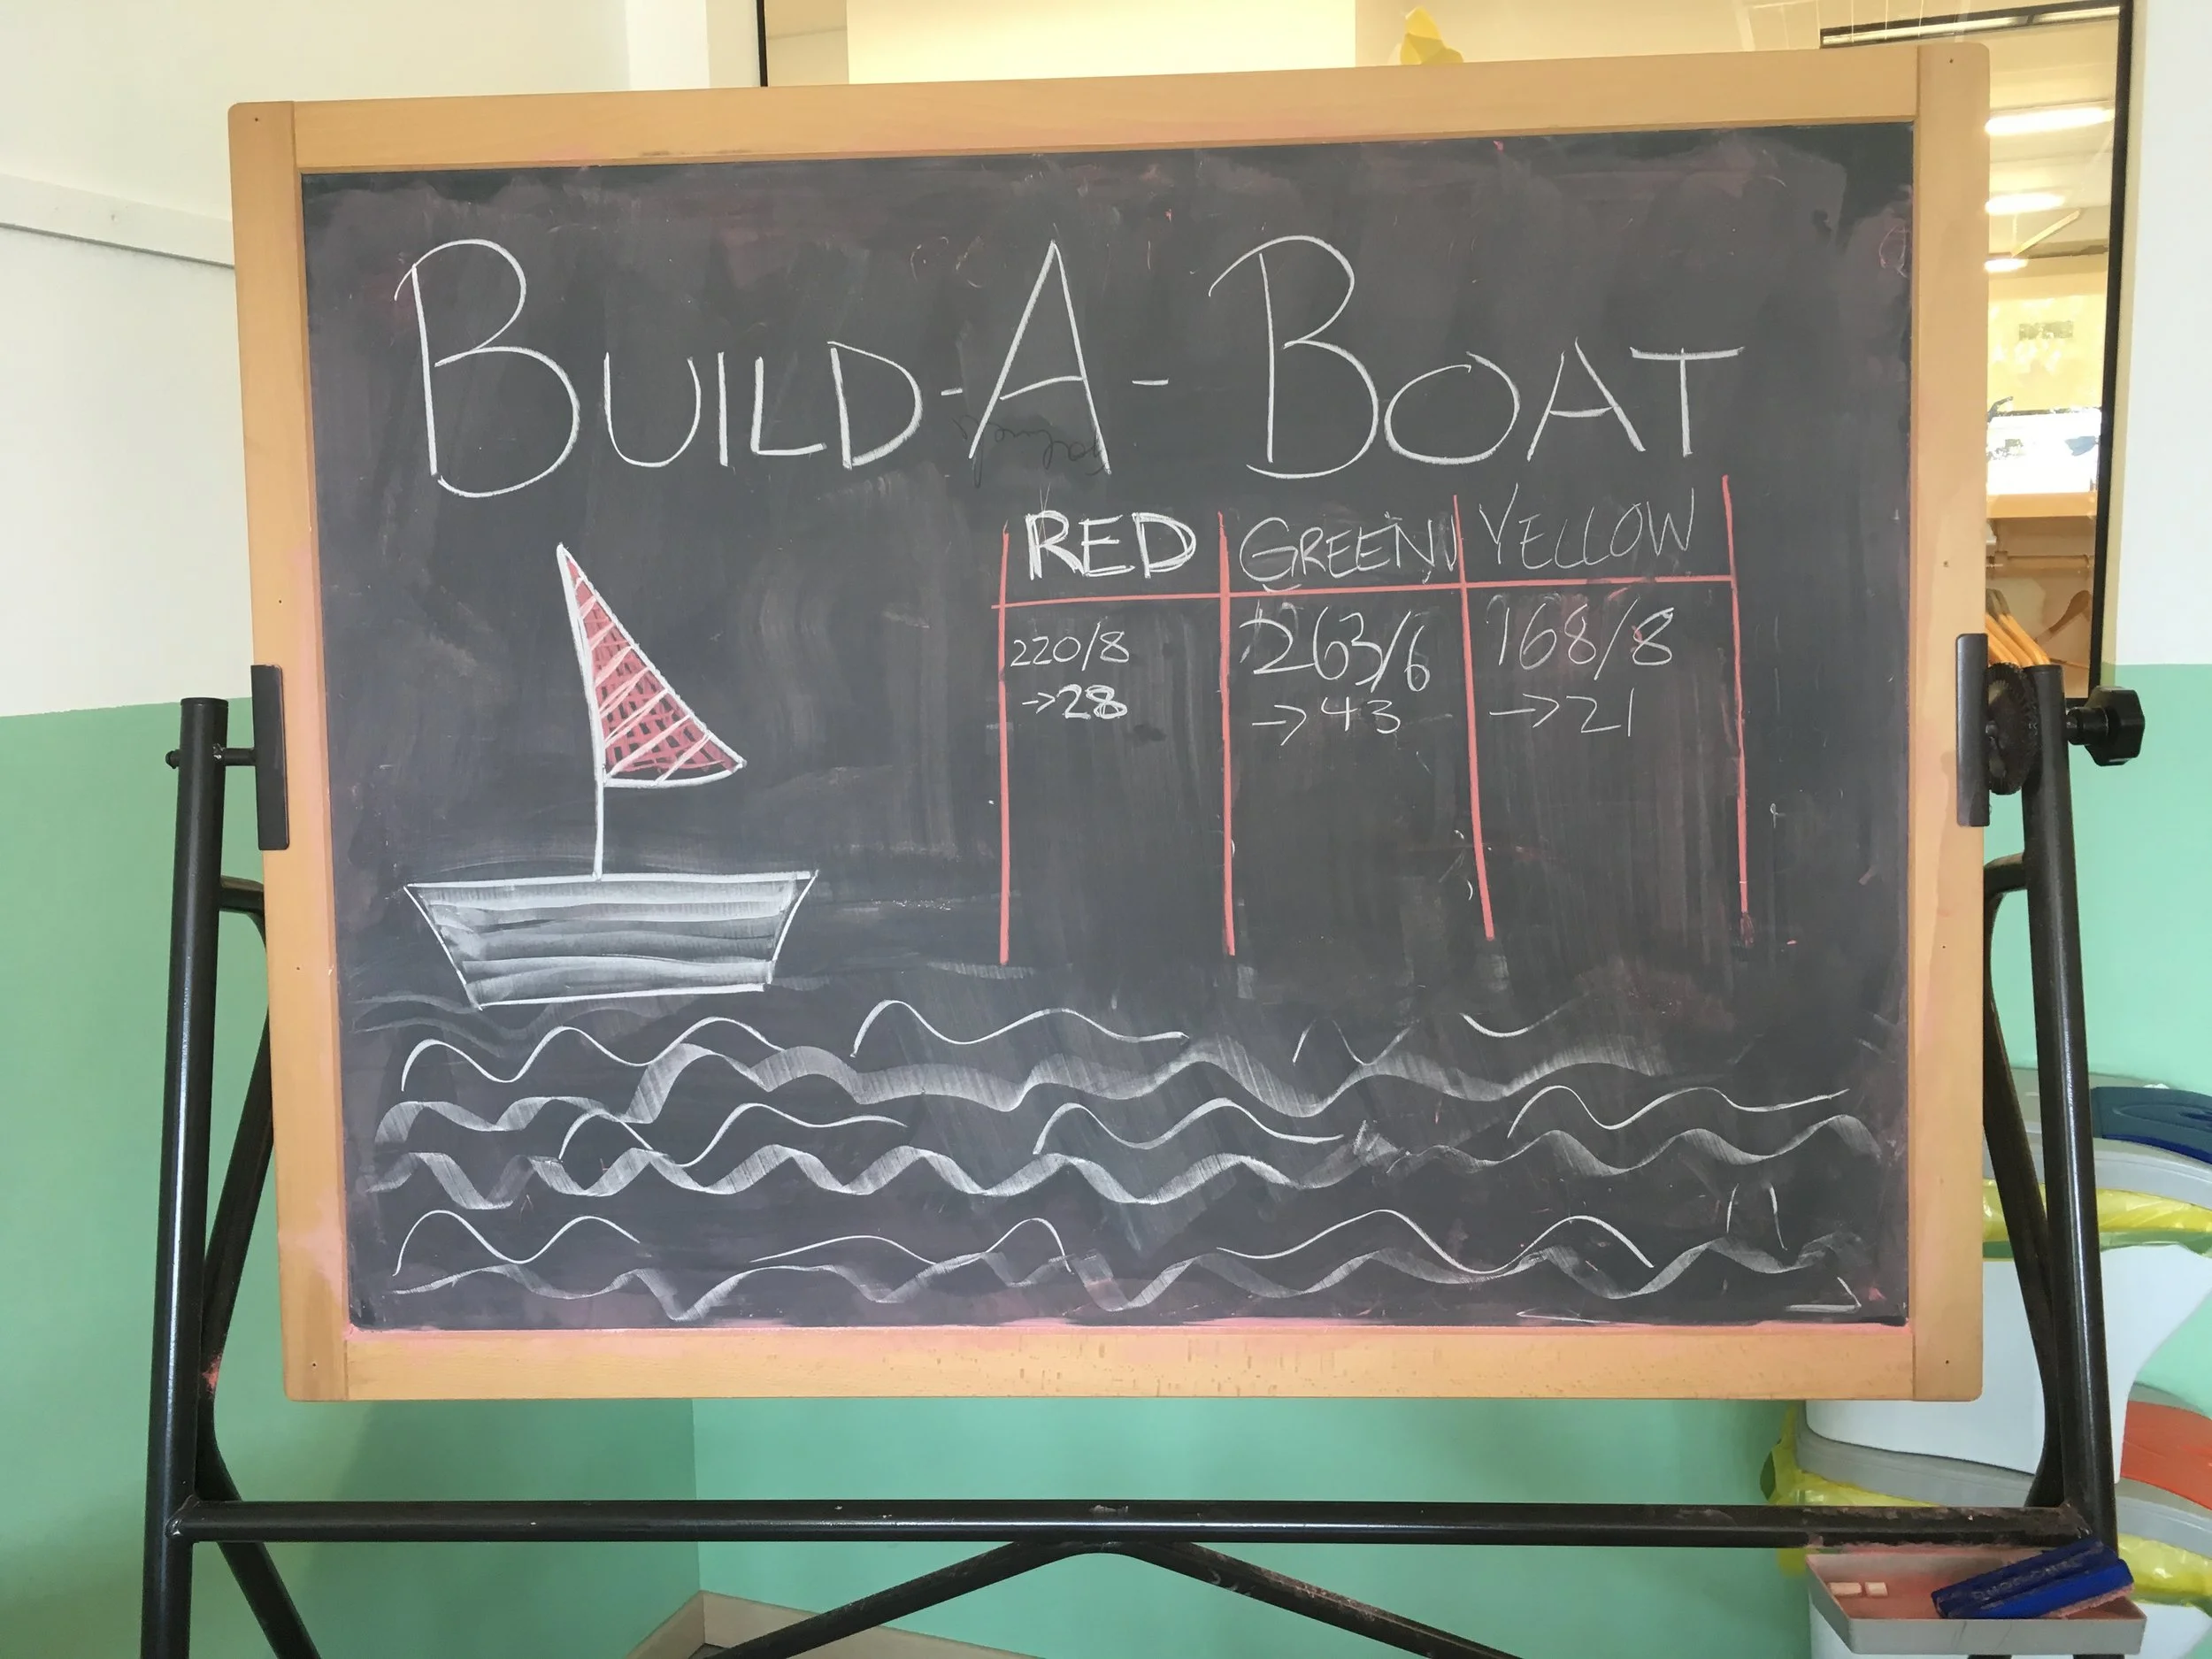 BUILD-A-BOAT
RED GREEN YELLOW
220/8 263/6 168/8
→28 →43 →21